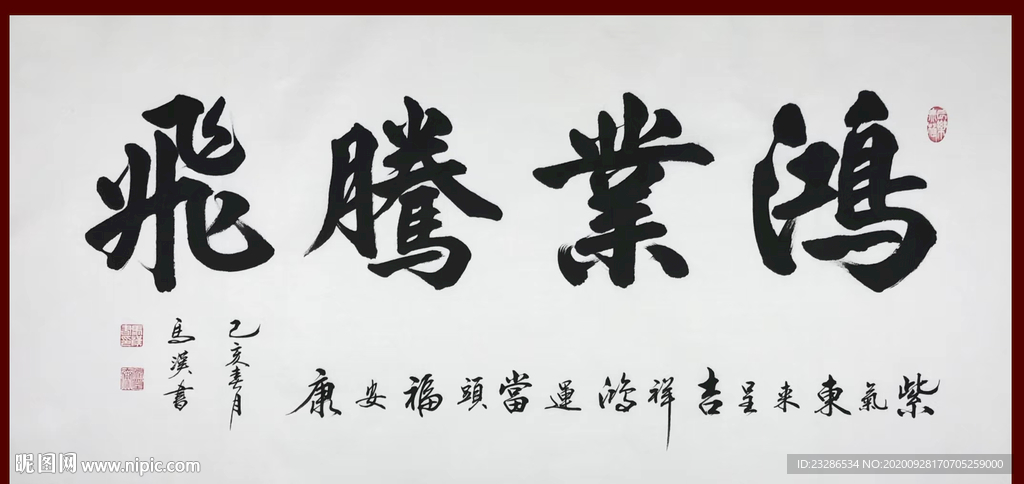 鴻業騰飛
紫氣東来呈吉祥鴻運當頭福安康
己亥春月
馬漢書
昵图网 www.nipic.com
ID:23286534 NO:20200928170705259000